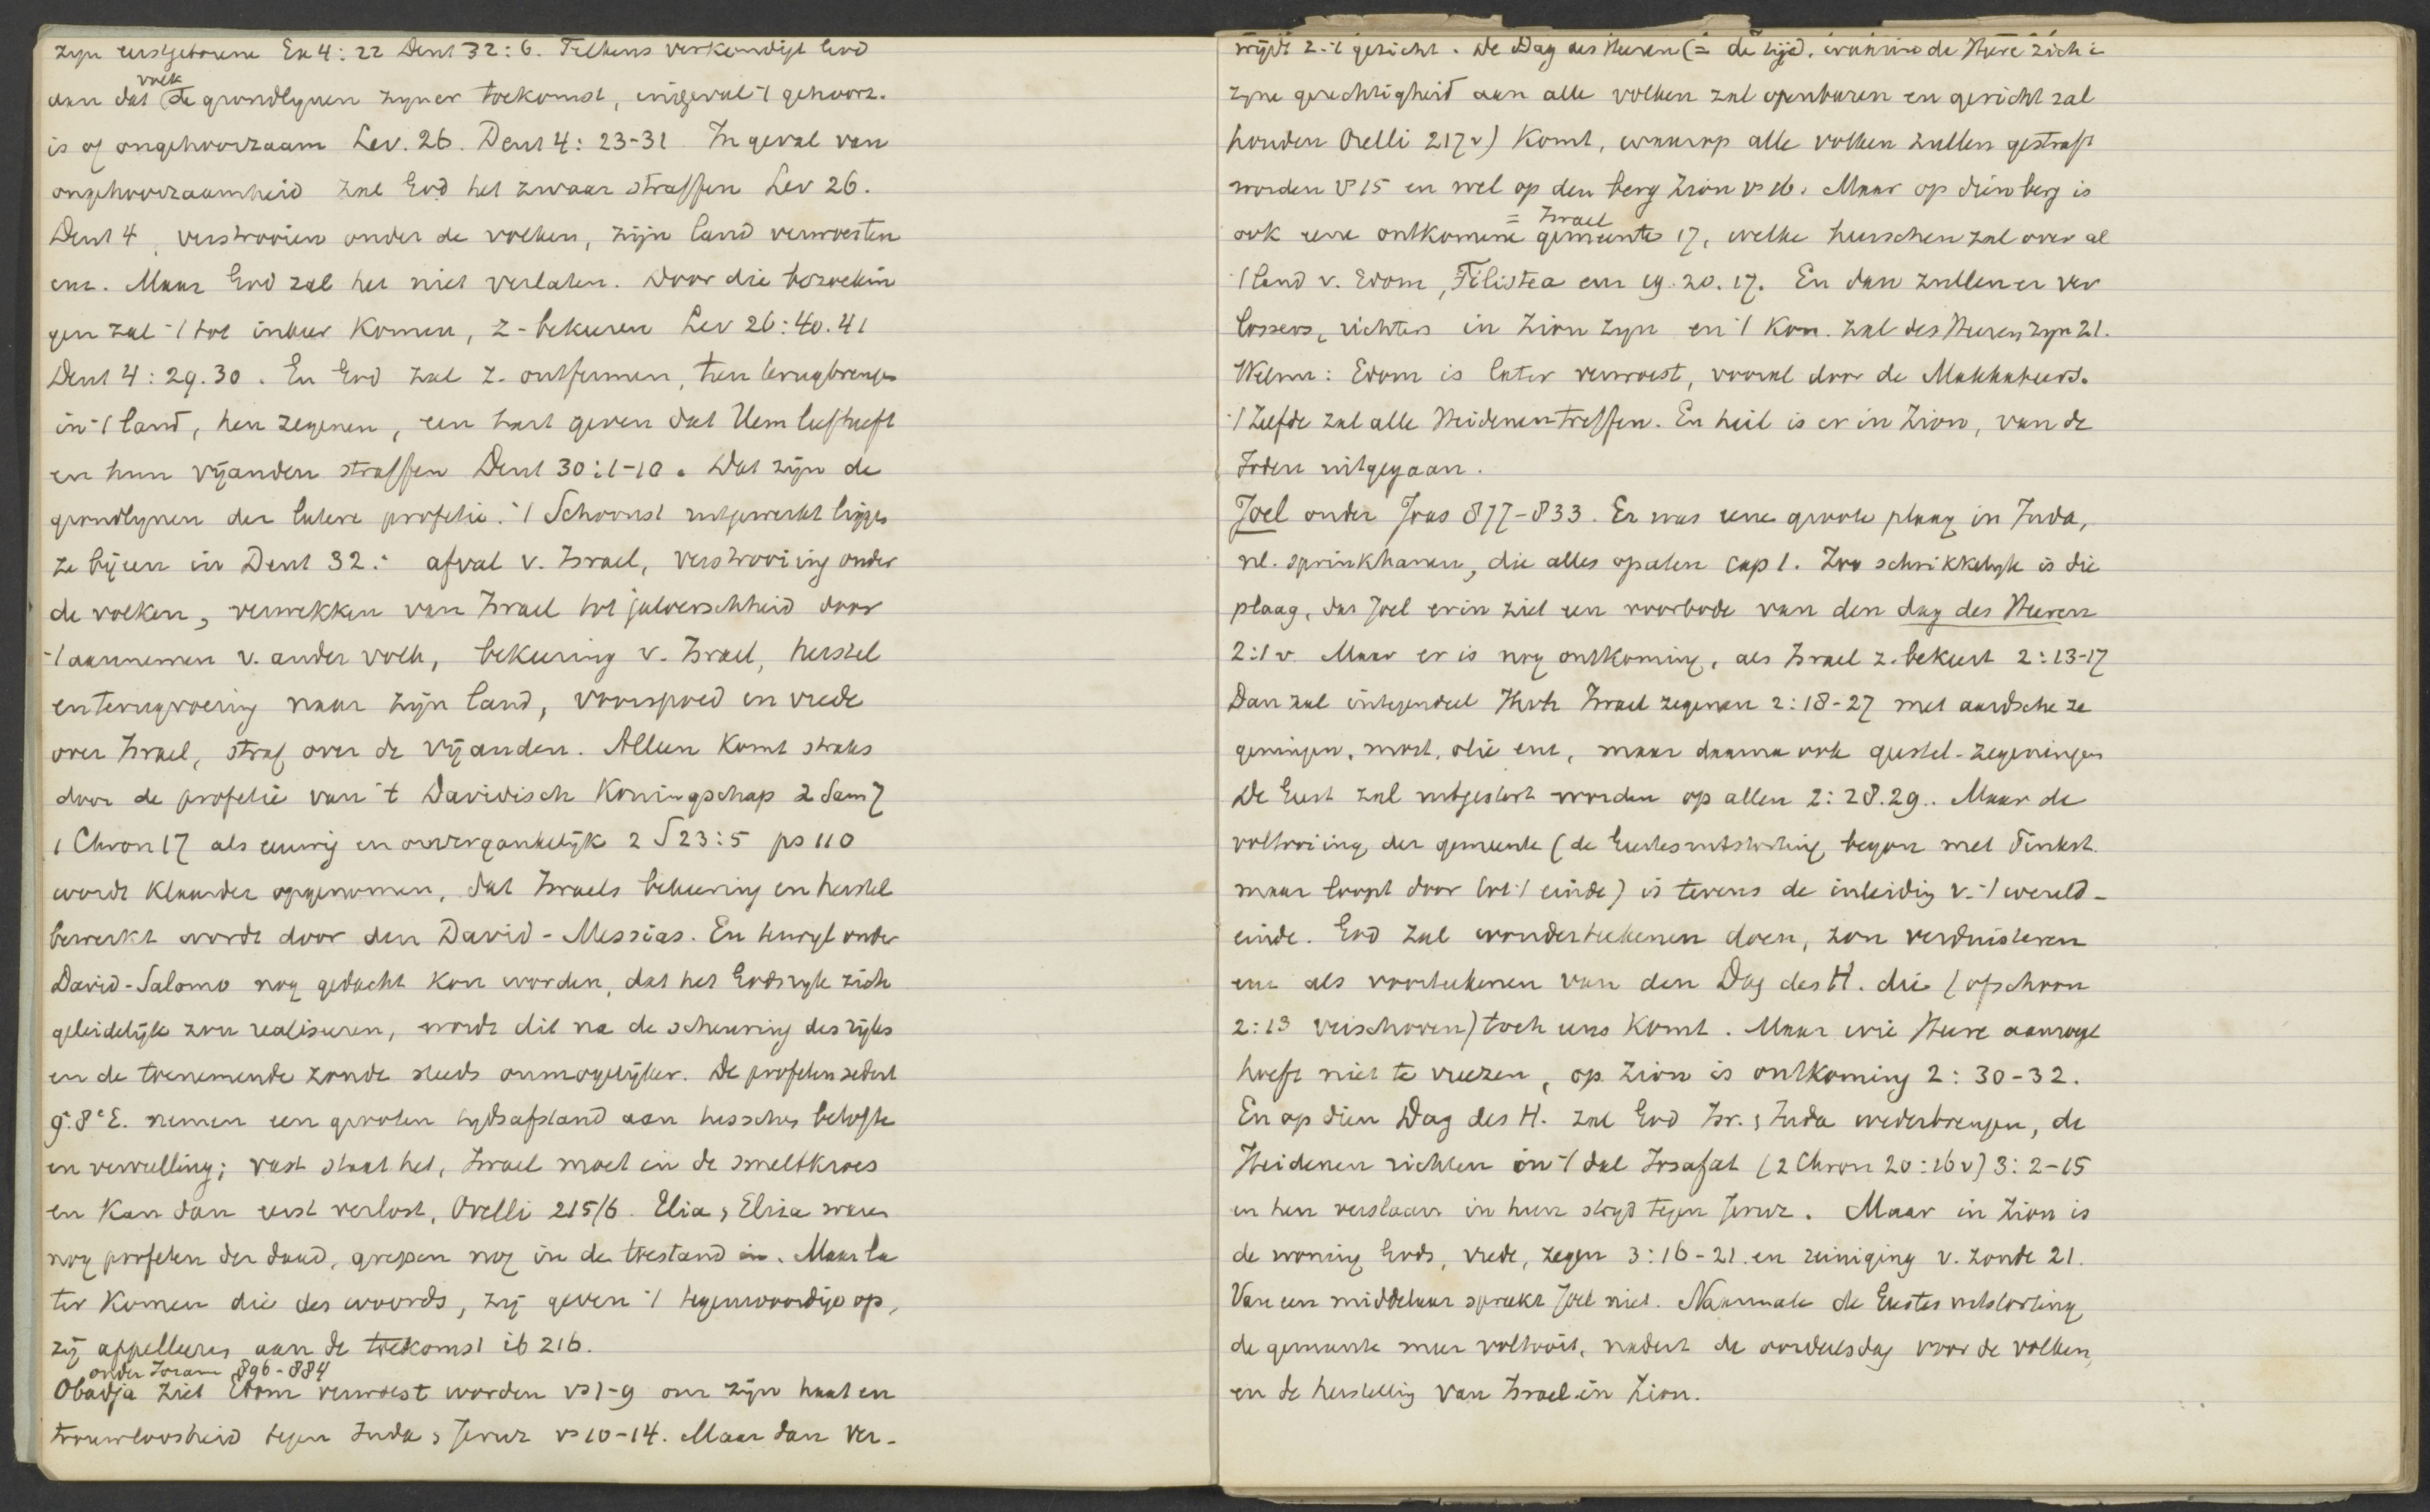 zyn eerstgeborene Ex 4:22 Deut 32:6. Telkens verkondigt God
volk
aan dat de grondlynen zyner toekomst, ingeval 't gehoorz.
is of ongehoorzaam Lev. 26. Deut 4: 23-31 In geval van
ongehoorzaamheid zal God het zwaar straffen Lev 26.
Deut 4, verstrooien onder de volken, zijn land verwoesten
enz. Maar God zal het niet verlaten. Door die bezoekin
gen zal 't tot inkeer komen, z- bekeeren Lev 26:40.41
Deut 4:29.30. En God zal z. ontfermen, hen terugbrengen
in 't land, hen zegenen, een hart geven dat Hem liefheeft
en hun vijanden straffen Deut 30:1-10. Dat zijn de
grondlynen der latere profetie. 't Schoonst uitgewerkt liggen
ze bijeen in Deut 32: afval v. Israel, verstrooiing onder
de volken, verwekken van Israel tot jaloerschheid door
't aannemen v. ander volk, bekeering v. Israel, herstel
en terugvoering naar zijn land, voorspoed en vrede
over Israel, straf over de vijanden. Alleen komt straks
door de profetie van 't Davidisch Koningschap 2 Sam 7
1 Chron 17 als eeuwig en onvergankelijk 2 S 23:5 ps 110
wordt klaarder opgenomen, dat Israels bekeering en herstel
bewerkt wordt door den David-Messias. En terwyl onder
David-Salomo nog gedacht kon worden, dat het Godsryk zich
geleidelijk zou realiseren, wordt dit na de scheuring des rijks
en de toenemende zonde steeds onmogelijker. De profeten sedert
9e 8e E. nemen een grooten tydsafstand aan tusschen belofte
en vervulling; vast staat het, Israel moet in de smeltkroes
en kan dan eerst verlost, Orelli 215/6. Elia, Elisa waren
nog profeten der daad, grepen nog in de toestand in. Maar la
ter komen die des woords, zij geven 't tegenwoordige op,
zij appelleeren aan de toekomst ib 216.
onder Joram 896-884
Obadja ziet Edom verwoest worden vs 1-9 om zijn haat en
trouwloosheid tegen Juda, Jeruz vs 10-14. Maar dan ver-
wijdt z- 't gezicht. De Dag des Heeren (= de tijd, wanneer de Heere zich i
zyne gerechtigheid aan alle volken zal openbaren en gericht zal
houden Orelli 217v) komt, waarop alle volken zullen gestraft
worden vs 15 en wel op den berg Zion vs 16. Maar op dien berg is
= Israel
ook eene ontkomene gemeente 17, welke heerschen zal over al
't land v. Edom, Filistea enz 19.20.17. En dan zullen er ver
lossers, richters in Zion zyn en 't Kon. zal des Heeren zyn 21.
Welnu: Edom is later verwoest, vooral door de Makkabeers.
't Zelfde zal alle Heidenen treffen. En heil is er in Zion, van de
Joden uitgegaan.
Joel onder Joas 877-833. Er was eene groote plaag in Juda,
nl. sprinkhanen, die alles opaten cap 1. Zoo schrikkelyk is die
plaag, dat Joel erin ziet een voorbode van den dag des Heeren
2:1 v. Maar er is nog ontkoming, als Israel z. bekeert 2:13-17
Dan zal integendeel Jhvh Israel zegenen 2:18-27 met aardsche ze
geningen, most, olie enz, maar daarna ook geestel- zegeningen
De Geest zal uitgestort worden op allen 2:28.29.. Maar de
voltooiing der gemeente (de Geestesuitstorting begon met Pinkst.
maar loopt door tot 't einde) is tevens de inleiding v. 't wereld-
einde. God zal wonderteekenen doen, zon verduisteren
enz als voorteekenen van den Dag des H. die (ofschoon
2:13 verschoven) toch eens komt. Maar wie Heere aanroept
hoeft niet te vreezen, op Zion is ontkoming 2:30-32.
En op dien Dag des H. zal God Isr. & Juda wederbrengen, de
Heidenen richten in 't dal Josafat (2 Chron 20:16v) 3:2-15
en hen verslaan in hun stryd tegen Jeruz. Maar in Zion is
de woning Gods, vrede, zegen 3:16-21 en reiniging v. zonde 21.
Van een middelaar spreekt Joel niet. Naarmate de Geestesuitstorting
de gemeente meer voltooit, nadert de oordeelsdag voor de volken,
en de herstelling van Israel in Zion.